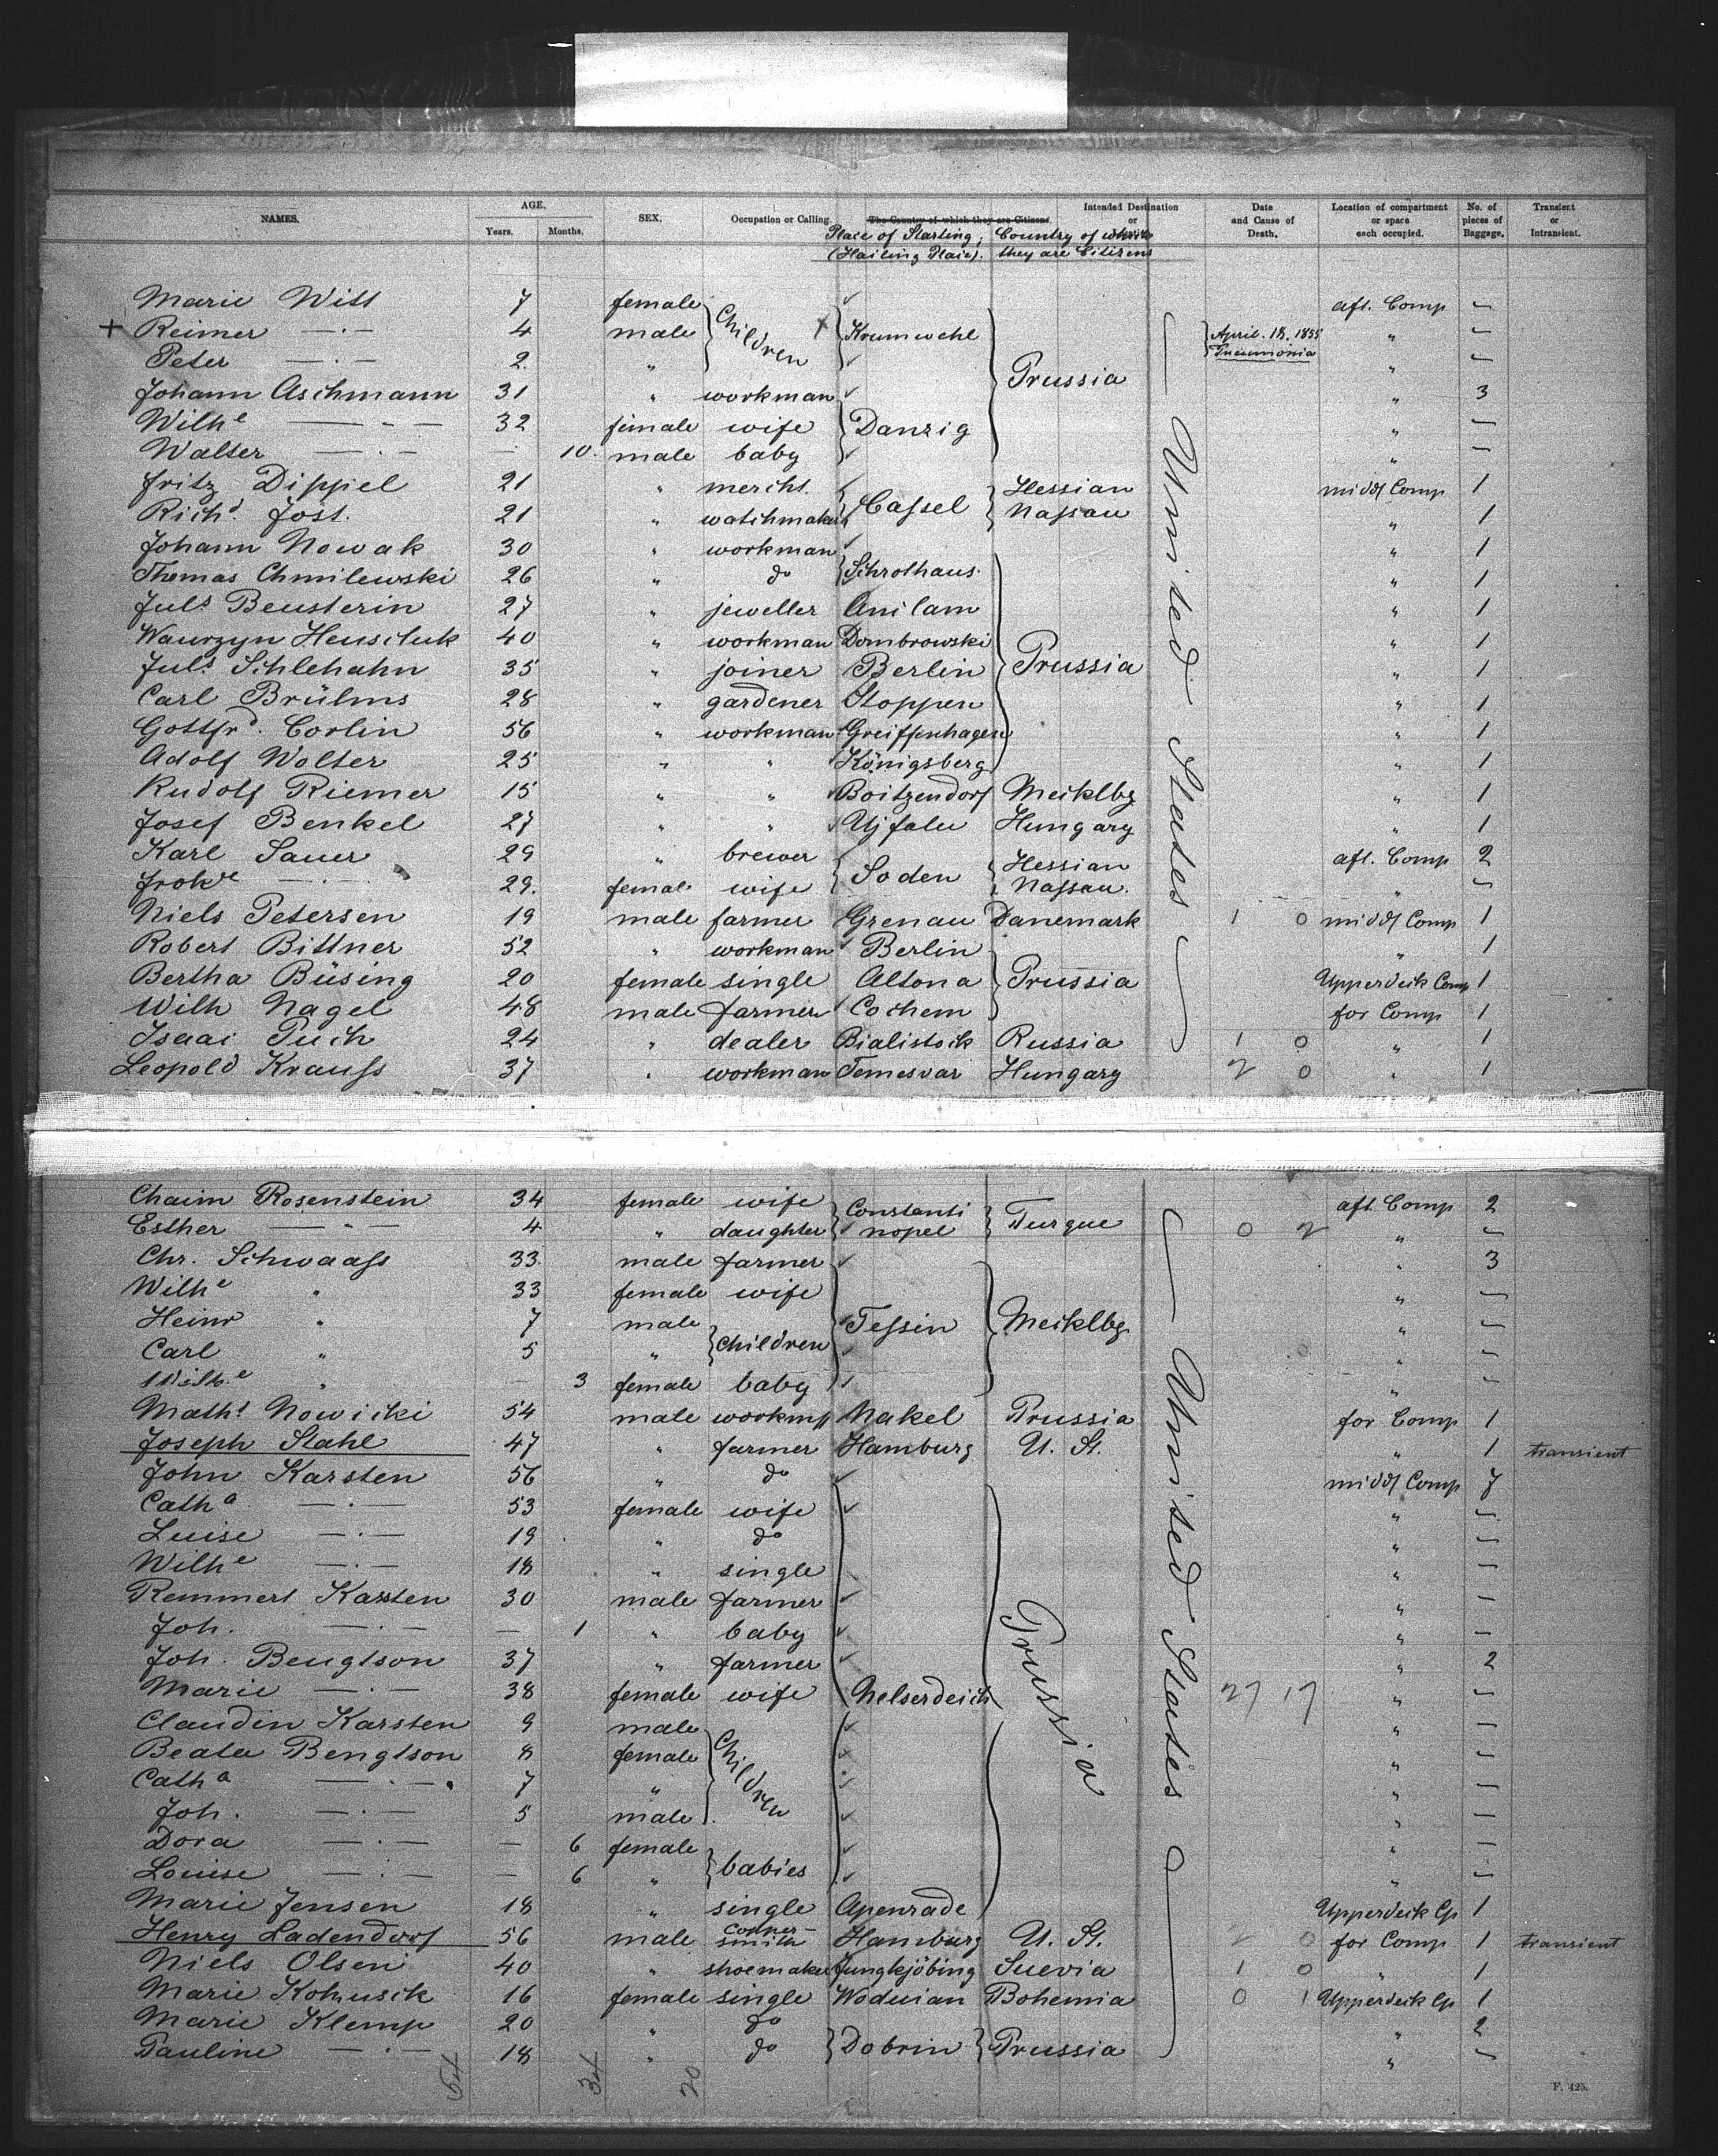 NAMES. AGE. Years. Months. SEX. Occupation or Calling. The Country of which they are Citizens. Intended Destination or Date and Cause of Death. Location of compartment or space each occupied. No. of pieces of Baggage. Transient or Intransient.
Place of Starting; Country of which
(Hailing Place). they are Citizens
Marie Witt 7 female aft. Comp —
+ Reimer —·— 4 male Children Krumwehl April. 18. 1885 " —
Peter —·— 2 " Pneumonia " —
Johann Aschmann 31 " workman Prussia " 3
Wilhe —·— 32 female wife Danzig " —
Walter —·— — 10. male baby " —
Fritz Dippel 21 " mercht. Hessian middl Comp 1
Richd. Jost. 21 " watchmaker Cassel Nassau " 1
Johann Nowak 30 " workman " 1
Thomas Chmilewski 26 " do Schrothaus " 1
Juls Beusterin 27 " jeweller " 1
40 " workman Dombrowski " 1
Juls. Schlehahn 35 " joiner Berlin Prussia " 1
Carl Brülms 28 " gardener Stoppen " 1
Gottfrd. Corlin 56 " workman Greiffenhagen " 1
Adolf Wolter 25 " " Königsberg " 1
Rudolf Riemer 15 " " Boitzendorf Mecklbg " 1
Josef Benkel 27 " " Ujfalu Hungary " 1
Karl Sauer 29 " brewer Hessian aft. Comp 2
29. female wife Soden Nassau. " —
Niels Petersen 19 male farmer Grenau Danemark 1 0 middl Comp 1
Robert Bittner 52 " workman Berlin " 1
Bertha Büsing 20 female single Altona Prussia Upperdeck Comp 1
Wilh Nagel 48 male farmer Cochem for Comp 1
Isaac Puch 24 " dealer Bialistock Russia 1 0 " 1
Leopold Krauss 37 " workman Temesvar Hungary 2 0 " 1
— United States —
Chaim Rosenstein 34 female wife Constanti aft. Comp 2
Esther —"— 4 " daughter nopel Turque 0 2 " —
Chr. Schwaass 33 male farmer " 3
Wilhe " 33 female wife " —
Heinr " 7 male Tessin Mecklbg " —
Carl " 5 " children " —
Wilhe " — 3 female baby " —
Maths Nowicki 54 male workm Nakel Prussia for Comp 1
Joseph Stahl 47 " farmer Hamburg U. St. " 1 transient
John Karsten 56 " do middl Comp 7
Catha —·— 53 female wife " —
Luise —·— 19 " do " —
Wilhe —·— 18 " single " —
Remmert Karsten 30 male farmer " —
Joh. —·— — 1 " baby " —
Joh. Bengtson 37 " farmer Prussia " 2
Marie —·— 38 female wife Nelserdeich 27 17 " —
Claudin Karsten 9 male " —
Beata Bengtson 8 female Children " —
Catha —·— 7 " " —
Joh. —·— 5 male " —
Dora —·— — 6 female " —
Louise —·— — 6 " babies " —
Marie Jensen 18 " single Apenrade Upperdeck Cp 1
Henry Ladendorf 56 male coppersmith Hamburg U. St. 2 0 for Comp 1 transient
Niels Olsen 40 " shoemaker Jungkjöbing Suevia 1 0 " 1
Marie Kohusik 16 female single Bohemia 0 1 Upperdeck Cp 1
Marie Klemp 20 " do " 2
Pauline —·— 18 " do Dobrin Prussia " —
— United States —
64 34 20
F. 425.